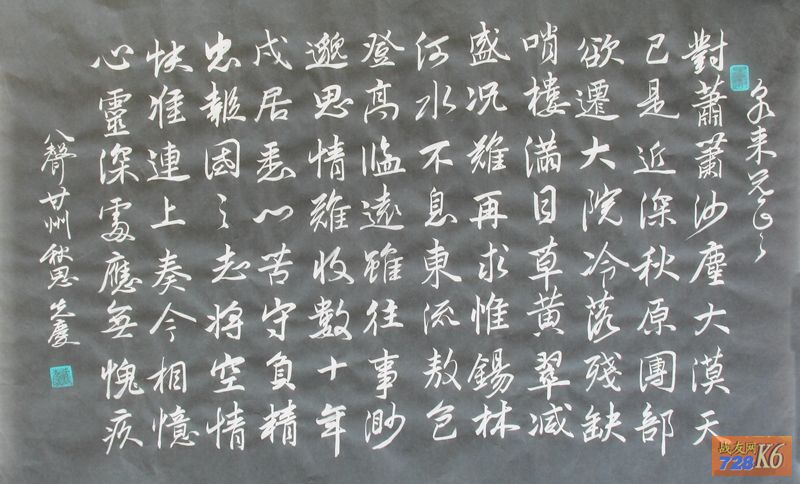 泉来兄正之
對蕭蕭沙塵大漠天
已是近深秋原團部
欲遷大院冷落殘缺
哨樓滿目草黄翠减
盛况難再求惟錫林
何水不息東流敖包
登高臨遠雖往事渺
邈思情難收數十年
戍居悉心苦守負精
忠報國之志將空情
怏准連上奏今相憶
心靈深處應無愧疚
八聲甘州秋思先慶
战友网
728 K6